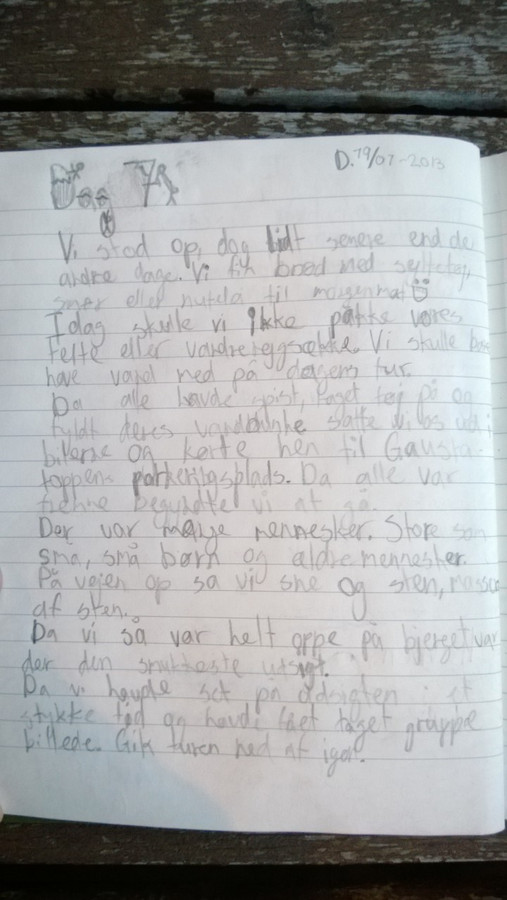 Dag 7
D. 19/07-2013
Vi stod op, dag lidt senere end de
andre dage. Vi fik brød med syltetøj,
smør eller nutela til morgenmad
I dag skulle vi ikke pakke vores
telte eller vandrerygsække. Vi skulle bare
have vand med på dagens tur.
Da alle havde spist, taget tøj på og
fyldt deres vanddunke satte vi os ud i
bilerne og kørte hen til Gausta-
toppens parkeringsplads. Da alle var
begyndte vi at gå.
Der var mange mennesker. Store som
små, små børn og ældre mennesker.
På vejen op så vi sne og sten, masser
af sten.
Da vi så var helt oppe på bjerget var
der den smukkeste utsigt.
Da vi havde set på udsigten i et
stykke tid og havde fået taget gruppe
billede. Gik turen ned af igen.